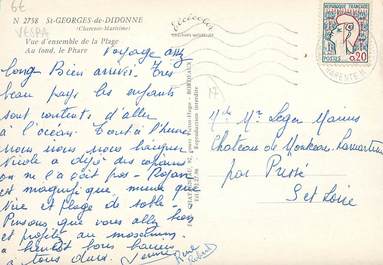 6€
VESPA
N 2758 St-GEORGES-de-DIDONNE
(Charente-Maritime)
Vue d'ensemble de la Plage
Au fond, le Phare
Voyage assez
long Bien arrivé. Très
beau pays les enfants
sont content, d'aller
à l'océan. Tout à l'heure
nous irons nous baigner
Nicole a déjà des
on ne l'a pas Royan
est magnifique, mieux que
Nice et plage de sable
Pensons que vous allez bien
et profité au maximum
a bientôt bons baisers
a tous deux.
René
REPUBLIQUE FRANÇAISE
POSTES 0,20
17
BORDEAUX
Reproduction interdite
Mde Mr Léger Marius
Château de Monceau
par Prissé
S et Loire